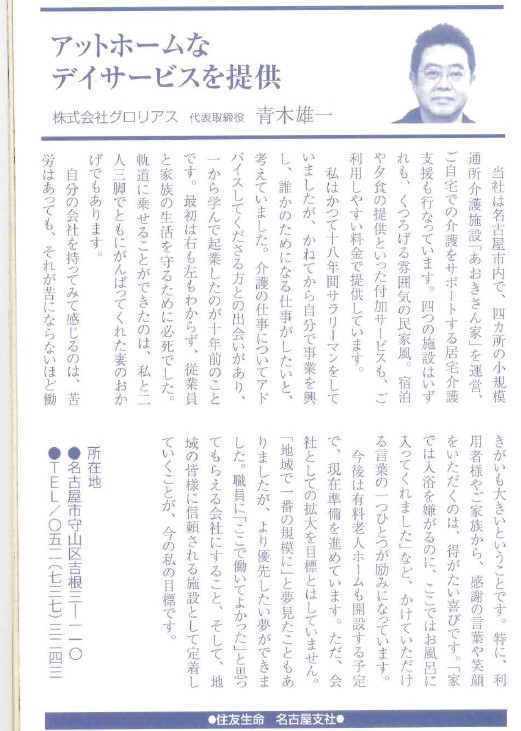 アットホームな
デイサービスを提供
株式会社グロリアス 代表取締役 青木雄一
当社は名古屋市内で、四カ所の小規模
通所介護施設「あおきさん家」を運営、
ご自宅での介護をサポートする居宅介護
支援も行なっています。四つの施設はいず
れも、くつろげる雰囲気の民家風。宿泊
や夕食の提供といった付加サービスも、ご
利用しやすい料金で提供しています。
私はかつて十八年間サラリーマンをして
いましたが、かねてから自分で事業を興
し、誰かのためになる仕事がしたいと、
考えていました。介護の仕事についてアド
バイスしてくださる方との出会いがあり、
一から学んで起業したのが十年前のこと
です。最初は右も左もわからず、従業員
と家族の生活を守るために必死でした。
軌道に乗せることができたのは、私と二
人三脚でともにがんばってくれた妻のおか
げでもあります。
自分の会社を持ってみて感じるのは、苦
労はあっても、それが苦にならないほど働
きがいも大きいということです。特に、利
用者様やご家族から、感謝の言葉や笑顔
をいただくのは、得がたい喜びです。「家
では入浴を嫌がるのに、ここではお風呂に
入ってくれました」など、かけていただけ
る言葉の一つひとつが励みになっています。
今後は有料老人ホームも開設する予定
で、現在準備を進めています。ただ、会
社としての拡大を目標とはしていません。
「地域で一番の規模に」と夢見たこともあ
りましたが、より優先したい夢ができま
した。職員に「ここで働いてよかった」と思っ
てもらえる会社にすること、そして、地
域の皆様に信頼される施設として定着し
ていくことが、今の私の目標です。
所在地
●名古屋市守山区吉根三ー一一〇
●TEL/〇五二(七三七)三二四三
●住友生命 名古屋支社●